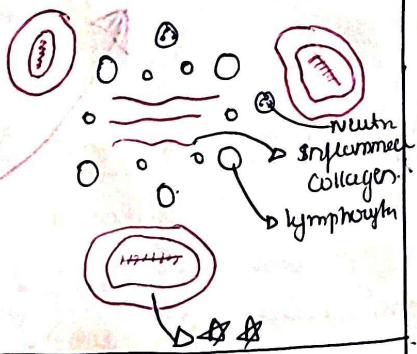 Neutn
Inflammed
Collagen.
Lymphocyte